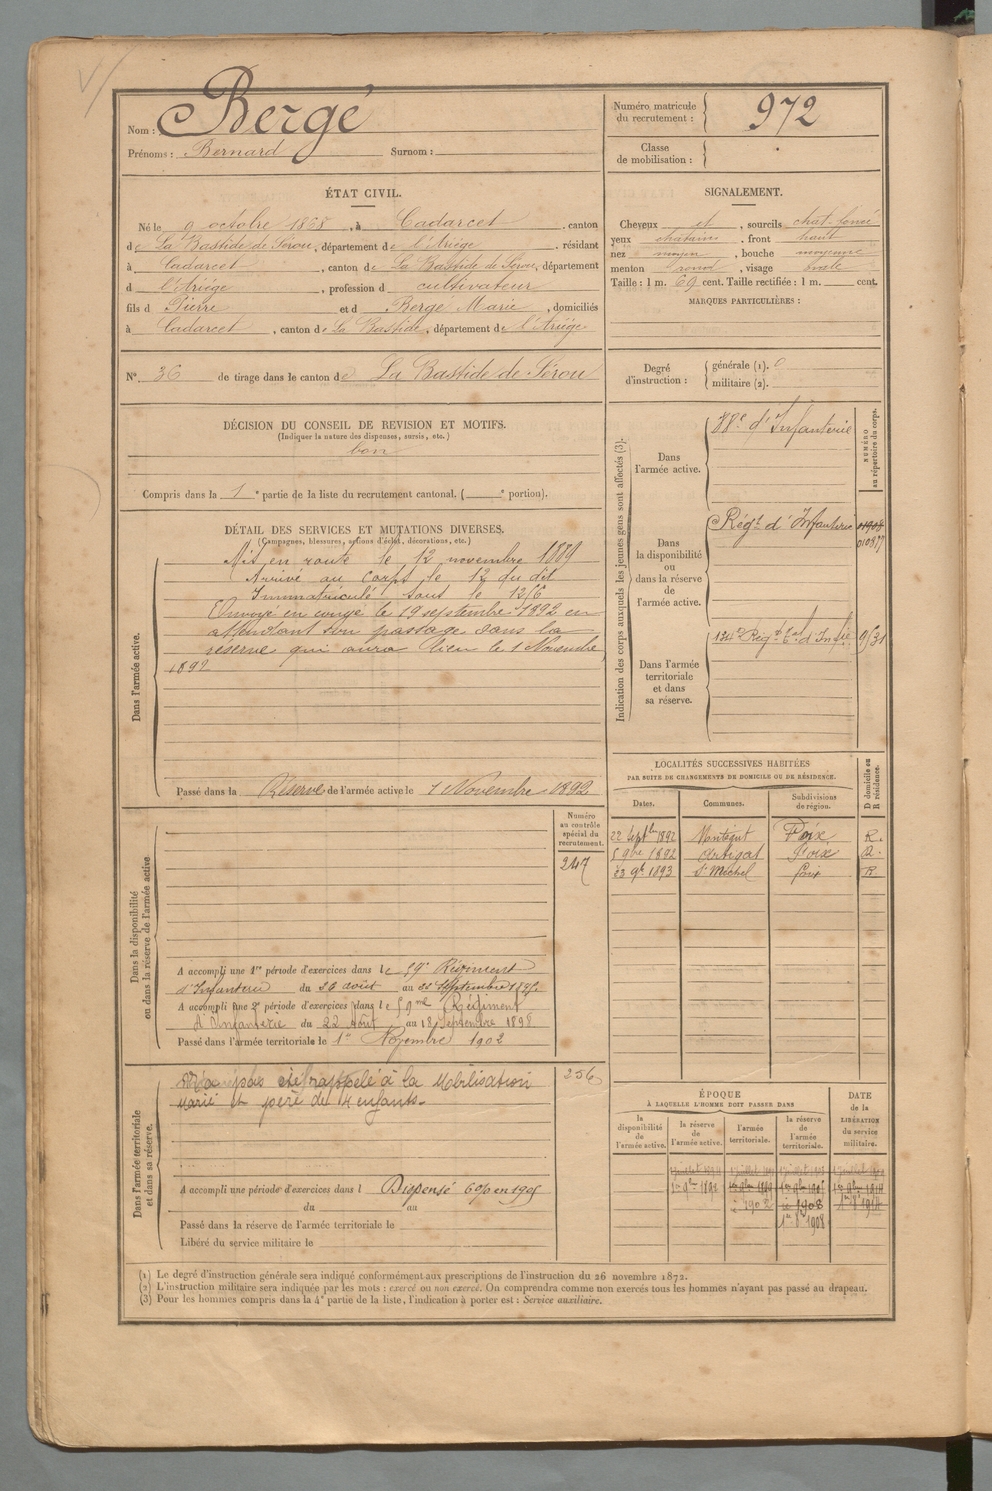 Nom : Bergé
Prénoms : Bernard Surnom :
Numéro matricule du recrutement : 972
Classe de mobilisation :
ÉTAT CIVIL.
Né le 9 octobre 1868, à Cadarcet, canton
de La Bastide de Sérou, département de l'Ariége, résidant
à Cadarcet, canton de La Bastide de Sérou, département
d l'Ariége, profession d cultivateur
fils d Pierre et d Bergé Marie, domiciliés
à Cadarcet, canton de La Bastide, département de l'Ariége
N° 36 de tirage dans le canton de La Bastide de Sérou
SIGNALEMENT.
Cheveux et, sourcils chat. foncé
yeux chatains, front haut
nez moyen, bouche moyenne
menton rond, visage ovale
Taille : 1 m. 69 cent. Taille rectifiée : 1 m. cent.
MARQUES PARTICULIÈRES :
Degré d'instruction : générale (1). 0
militaire (2).
DÉCISION DU CONSEIL DE REVISION ET MOTIFS.
(Indiquer la nature des dispenses, sursis, etc.)
bon
Compris dans la 1e partie de la liste du recrutement cantonal. ( e portion).
DÉTAIL DES SERVICES ET MUTATIONS DIVERSES.
(Campagnes, blessures, actions d'éclat, décorations, etc.)
Dans l'armée active.
Mis en route le 12 novembre 1889
Arrivé au corps le 12 du dit
Immatriculé sous le
Envoyé en congé le 19 septembre 1892 en
attendant son passage dans la
réserve qui aura lieu le 1 Novembre
1892
Passé dans la Réserve de l'armée active le 1 Novembre 1892
Indication des corps auxquels les jeunes gens sont affectés (3).
NUMÉRO au répertoire du corps.
Dans l'armée active.
d'Infanterie
Dans la disponibilité ou dans la réserve de l'armée active.
Régt d'Infanterie
010877
Dans l'armée territoriale et dans sa réserve.
134e Régt Tal d'Infie
LOCALITÉS SUCCESSIVES HABITÉES
PAR SUITE DE CHANGEMENTS DE DOMICILE OU DE RÉSIDENCE.
Dates. Communes. Subdivisions de région. D domicile ou R résidence.
22 Septbre 1892 Montégut Foix R.
5 9bre 1892 Artigat Foix
23 9b 1893 St Michel Foix R
Dans la disponibilité ou dans la réserve de l'armée active
Numéro au contrôle spécial du recrutement.
247
A accompli une 1re période d'exercices dans le 59e Régiment
d'Infanterie du 26 août au 22 Septembre 1895
A accompli une 2e période d'exercices dans le 59me Régiment
d'Infanterie du 22 août au 18 Septembre 1898
Passé dans l'armée territoriale le 1er Novembre 1902
Dans l'armée territoriale et dans sa réserve.
256
N'a pas été rappelé à la Mobilisation
Marié et père de 4 enfants.
A accompli une période d'exercices dans l Dispensé 6 0/0 en 1905
du au
Passé dans la réserve de l'armée territoriale le
Libéré du service militaire le
ÉPOQUE
À LAQUELLE L'HOMME DOIT PASSER DANS
la disponibilité de l'armée active. la réserve de l'armée active. l'armée territoriale. la réserve de l'armée territoriale. DATE de la LIBÉRATION du service militaire.
1er 9bre 1892
1902 1908
1er 8b 1908
(1) Le degré d'instruction générale sera indiqué conformément aux prescriptions de l'instruction du 26 novembre 1872.
(2) L'instruction militaire sera indiquée par les mots : exercé ou non exercé. On comprendra comme non exercés tous les hommes n'ayant pas passé au drapeau.
(3) Pour les hommes compris dans la 4e partie de la liste, l'indication à porter est : Service auxiliaire.